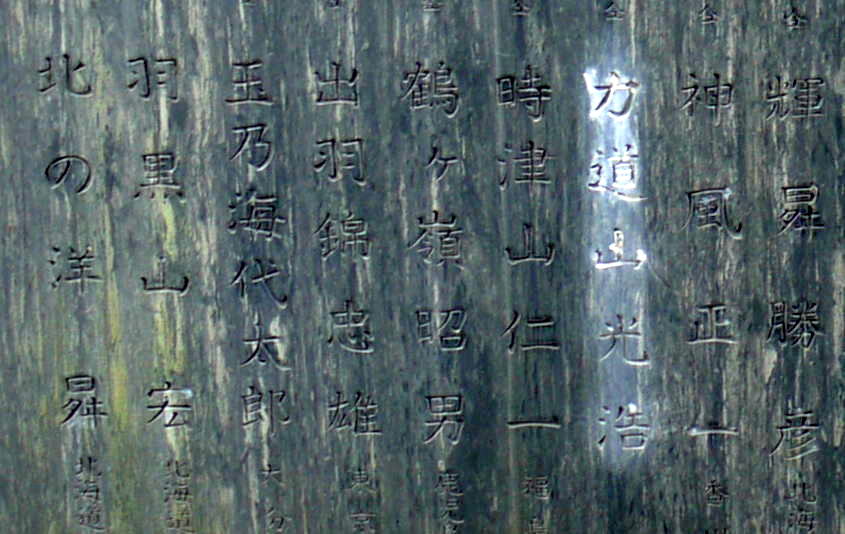 仝 輝昇勝彦 北海
仝 神風正一 香川
仝 力道山光浩
時津山仁一 福島
鶴ヶ嶺昭男 鹿児
出羽錦忠雄 東京
玉乃海代太郎 大分
羽黒山宏 北海道
北の洋昇 北海道